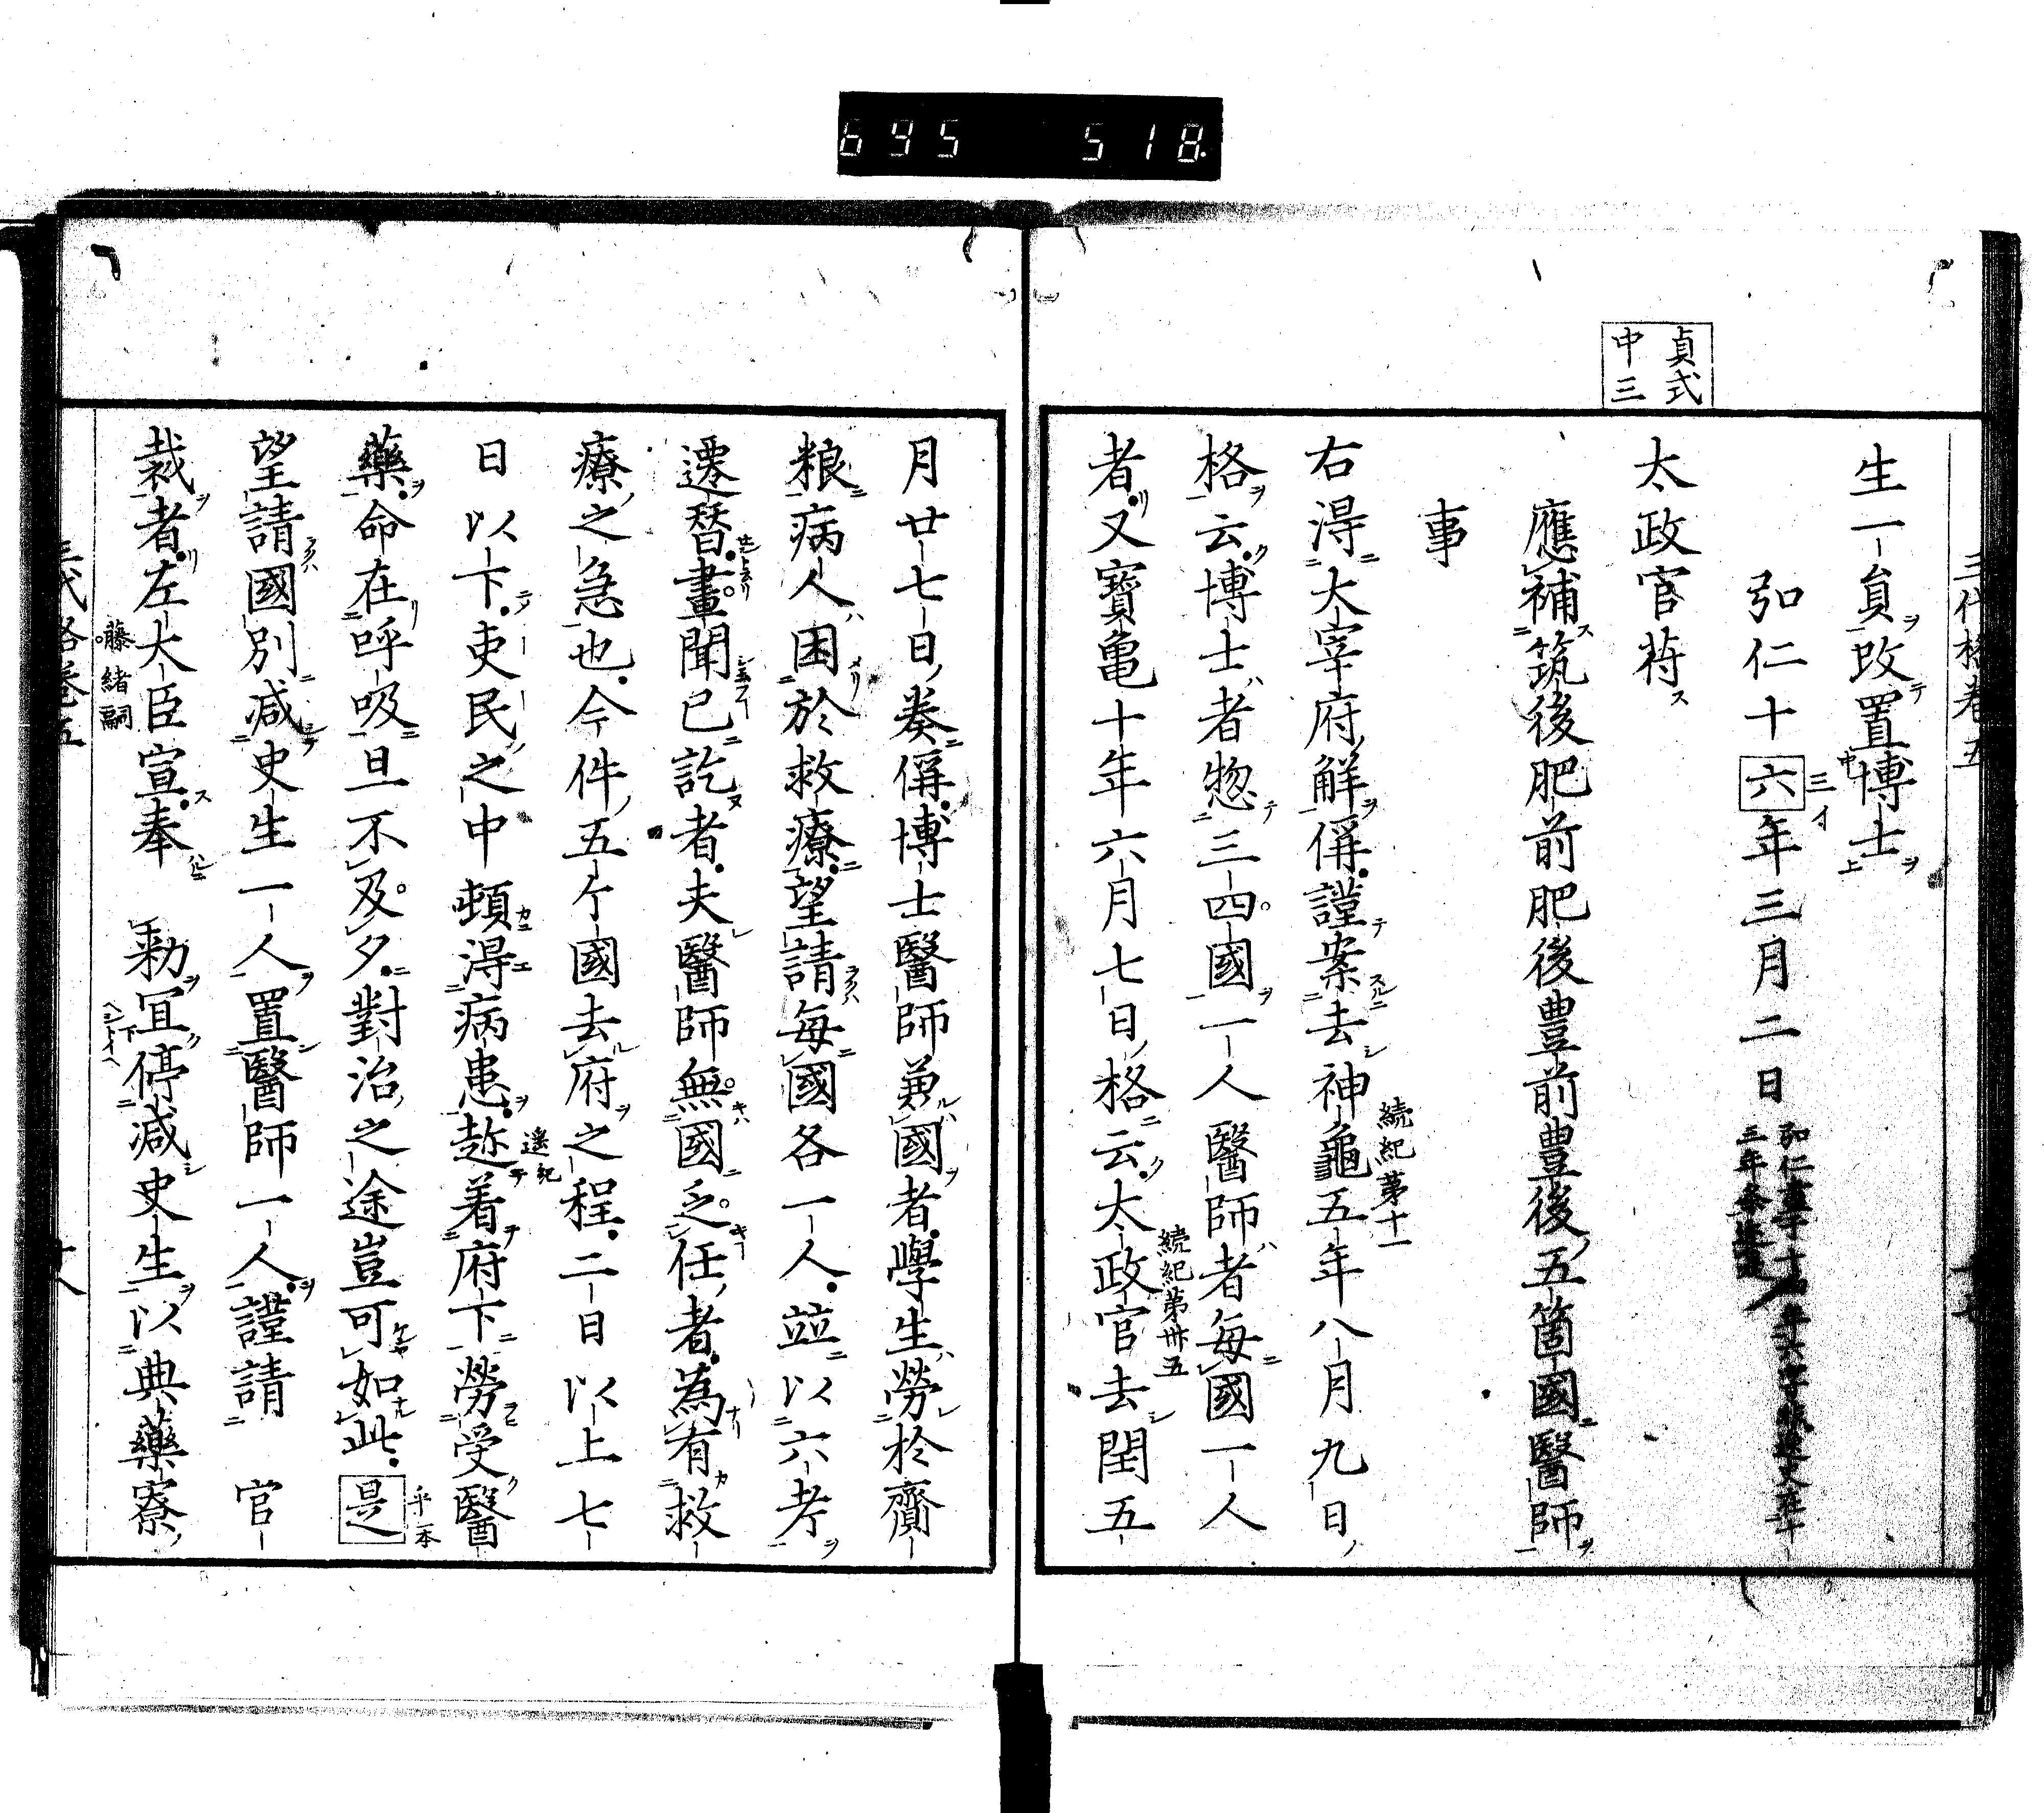 695 518
三代格卷五
生一員改置博士
弘仁十六年三月二日
三イ
貞式
中三
太政官苻
應補筑後肥前肥後豊前豊後五箇國醫師
事
右得大宰府解偁謹案去神龜五年八月九日
続紀第十一
格云博士者惣三四國一人醫師者每國一人
者又寳亀十年六月七日格云太政官去閏五
続紀第卅五
月廿七日奏偁博士醫師兼國者學生勞於齎
粮病人困於救療望請每國各一人並以六考
遷替畫聞已訖者夫醫師無國乏任者為有救
療之急也今件五个國去府之程二日以上七
日以下吏民之中頓得病患趂着府下勞受醫
藥命在呼吸旦不及夕對治之途豈可如此是
乎一本
望請國別減史生一人置醫師一人謹請 官
裁者左大臣宣奉 勅冝停減史生以典藥寮
藤緒嗣